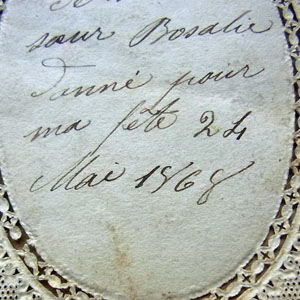 sœur Bosalie
donné pour
ma fête 24
Mai 1868